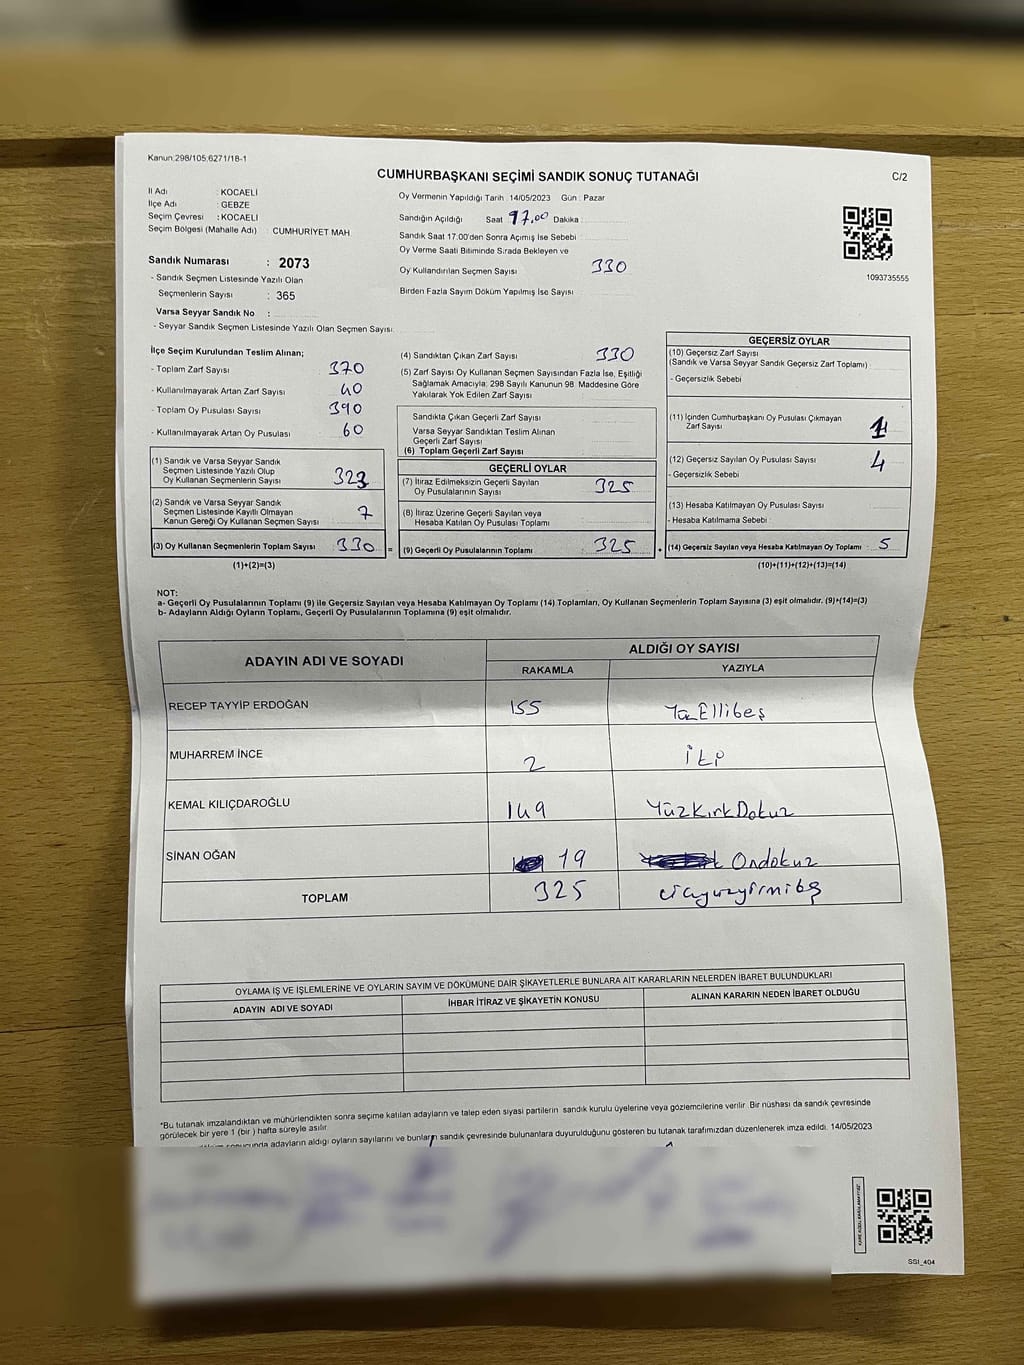 Kanun 298/105;6271/18-1
CUMHURBAŞKANI SEÇİMİ SANDIK SONUÇ TUTANAĞI
C/2
İl Adı : KOCAELİ
İlçe Adı : GEBZE
Seçim Çevresi : KOCAELİ
Seçim Bölgesi (Mahalle Adı) : CUMHURİYET MAH
Oy Vermenin Yapıldığı Tarih :14/05/2023 Gün : Pazar
Sandığın Açıldığı Saat 17.00 Dakika
Sandık Saat 17:00'den Sonra Açımış İse Sebebi :
Oy Verme Saati Bitiminde Sırada Bekleyen ve
Oy Kullandırılan Seçmen Sayısı 330
Birden Fazla Sayım Döküm Yapılmış İse Sayısı
1093735555
Sandık Numarası : 2073
- Sandık Seçmen Listesinde Yazılı Olan
Seçmenlerin Sayısı : 365
Varsa Seyyar Sandık No :
- Seyyar Sandık Seçmen Listesinde Yazılı Olan Seçmen Sayısı:
İlçe Seçim Kurulundan Teslim Alınan;
- Toplam Zarf Sayısı 370
- Kullanılmayarak Artan Zarf Sayısı 40
- Toplam Oy Pusulası Sayısı 390
- Kullanılmayarak Artan Oy Pusulası 60
(1) Sandık ve Varsa Seyyar Sandık
Seçmen Listesinde Yazılı Olup
Oy Kullanan Seçmenlerin Sayısı 323
(2) Sandık ve Varsa Seyyar Sandık
Seçmen Listesinde Kayıtlı Olmayan
Kanun Gereği Oy Kullanan Seçmen Sayısı 7
(3) Oy Kullanan Seçmenlerin Toplam Sayısı 330 =
(1)+(2)=(3)
(4) Sandıktan Çıkan Zarf Sayısı 330
(5) Zarf Sayısı Oy Kullanan Seçmen Sayısından Fazla İse, Eşitliği
Sağlamak Amacıyla; 298 Sayılı Kanunun 98. Maddesine Göre
Yakılarak Yok Edilen Zarf Sayısı
Sandıkta Çıkan Geçerli Zarf Sayısı
Varsa Seyyar Sandıktan Teslim Alınan
Geçerli Zarf Sayısı
(6) Toplam Geçerli Zarf Sayısı
GEÇERLİ OYLAR
(7) İtiraz Edilmeksizin Geçerli Sayılan
Oy Pusulalarının Sayısı 325
(8) İtiraz Üzerine Geçerli Sayılan veya
Hesaba Katılan Oy Pusulası Toplamı
(9) Geçerli Oy Pusulalarının Toplamı 325 +
GEÇERSİZ OYLAR
(10) Geçersiz Zarf Sayısı
(Sandık ve Varsa Seyyar Sandık Geçersiz Zarf Toplamı)
- Geçersizlik Sebebi
(11) İçinden Cumhurbaşkanı Oy Pusulası Çıkmayan
Zarf Sayısı 1
(12) Geçersiz Sayılan Oy Pusulası Sayısı 4
- Geçersizlik Sebebi
(13) Hesaba Katılmayan Oy Pusulası Sayısı
- Hesaba Katılmama Sebebi
(14) Geçersiz Sayılan veya Hesaba Katılmayan Oy Toplamı : 5
(10)+(11)+(12)+(13)=(14)
NOT:
a- Geçerli Oy Pusulalarının Toplamı (9) ile Geçersiz Sayılan veya Hesaba Katılmayan Oy Toplamı (14) Toplamları, Oy Kullanan Seçmenlerin Toplam Sayısına (3) eşit olmalıdır. (9)+(14)=(3)
b- Adayların Aldığı Oyların Toplamı, Geçerli Oy Pusulalarının Toplamına (9) eşit olmalıdır.
ADAYIN ADI VE SOYADI ALDIĞI OY SAYISI
RAKAMLA YAZIYLA
RECEP TAYYİP ERDOĞAN 155 YüzEllibeş
MUHARREM İNCE 2 İki
KEMAL KILIÇDAROĞLU 149 YüzKırkDokuz
SİNAN OĞAN 19 Ondokuz
TOPLAM 325
OYLAMA İŞ VE İŞLEMLERİNE VE OYLARIN SAYIM VE DÖKÜMÜNE DAİR ŞİKAYETLERLE BUNLARA AİT KARARLARIN NELERDEN İBARET BULUNDUKLARI
ADAYIN ADI VE SOYADI İHBAR İTİRAZ VE ŞİKAYETİN KONUSU ALINAN KARARIN NEDEN İBARET OLDUĞU
*Bu tutanak imzalandıktan ve mühürlendikten sonra seçime katılan adayların ve talep eden siyasi partilerin sandık kurulu üyelerine veya gözlemcilerine verilir. Bir nüshası da sandık çevresinde
görülecek bir yere 1 (bir ) hafta süreyle asılır.
sonucunda adayların aldığı oyların sayılarını ve bunların sandık çevresinde bulunanlara duyurulduğunu gösteren bu tutanak tarafımızdan düzenlenerek imza edildi. 14/05/2023
SSI_404